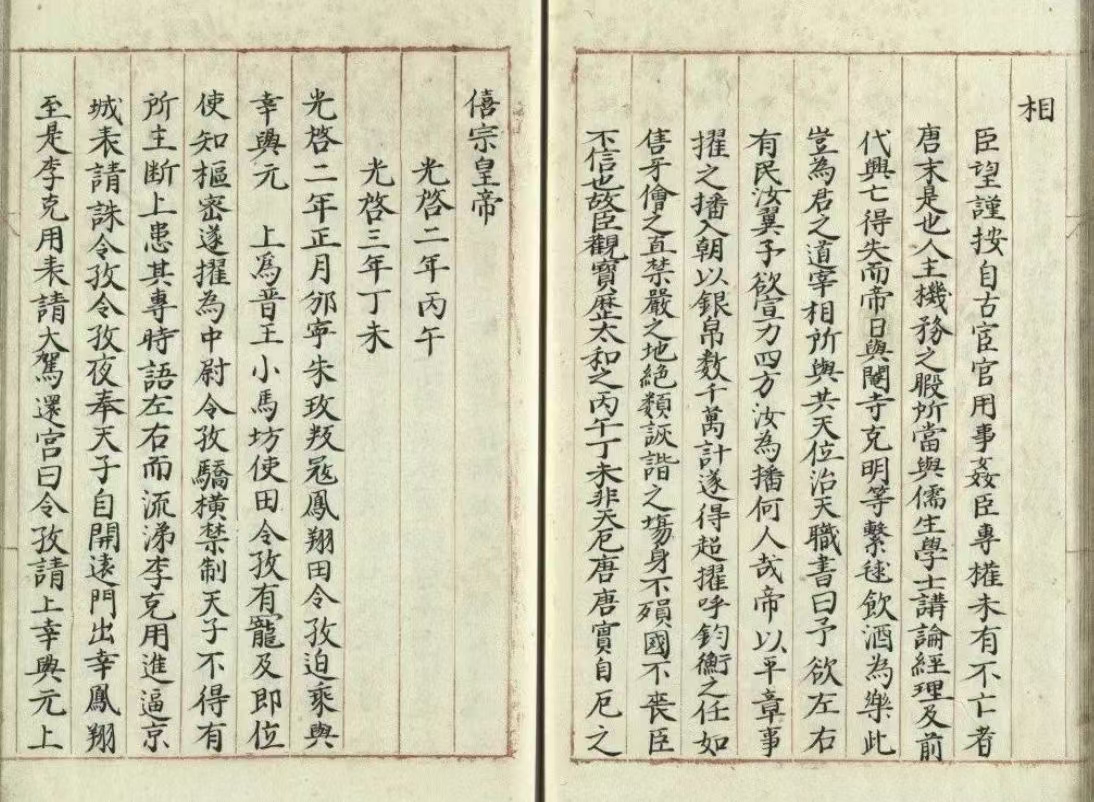 相
臣望謹按自古宦官用事姦臣專權未有不亡者
唐末是也人主機務之暇所當與儒生學士講論經理及前
代興亡得失而帝日與閹寺克明等擊毬飲酒為樂此
豈為君之道宰相所與共天位治天職書曰予欲左右
有民汝翼予欲宣力四方汝為播何人哉帝以平章事
擢之播入朝以銀帛數千萬計遂得超擢呼鈞衡之任如
售牙儈之直禁嚴之地絶類詼諧之塲身不殞國不喪臣
不信也故臣觀寶歷太和之丙午丁未非天厄唐唐實自厄之
僖宗皇帝
光啓二年丙午
光啓三年丁未
光啓二年正月邠寧朱玫叛冦鳳翔田令孜迫乘輿
幸興元 上爲普王小馬坊使田令孜有寵及即位
使知樞密遂擢為中尉令孜驕橫禁制天子不得有
所主断上患其專時語左右而流涕李克用進逼京
城表請誅令孜令孜夜奉天子自開逺門出幸鳳翔
至是李克用表請大駕還宮曰令孜請上幸興元上